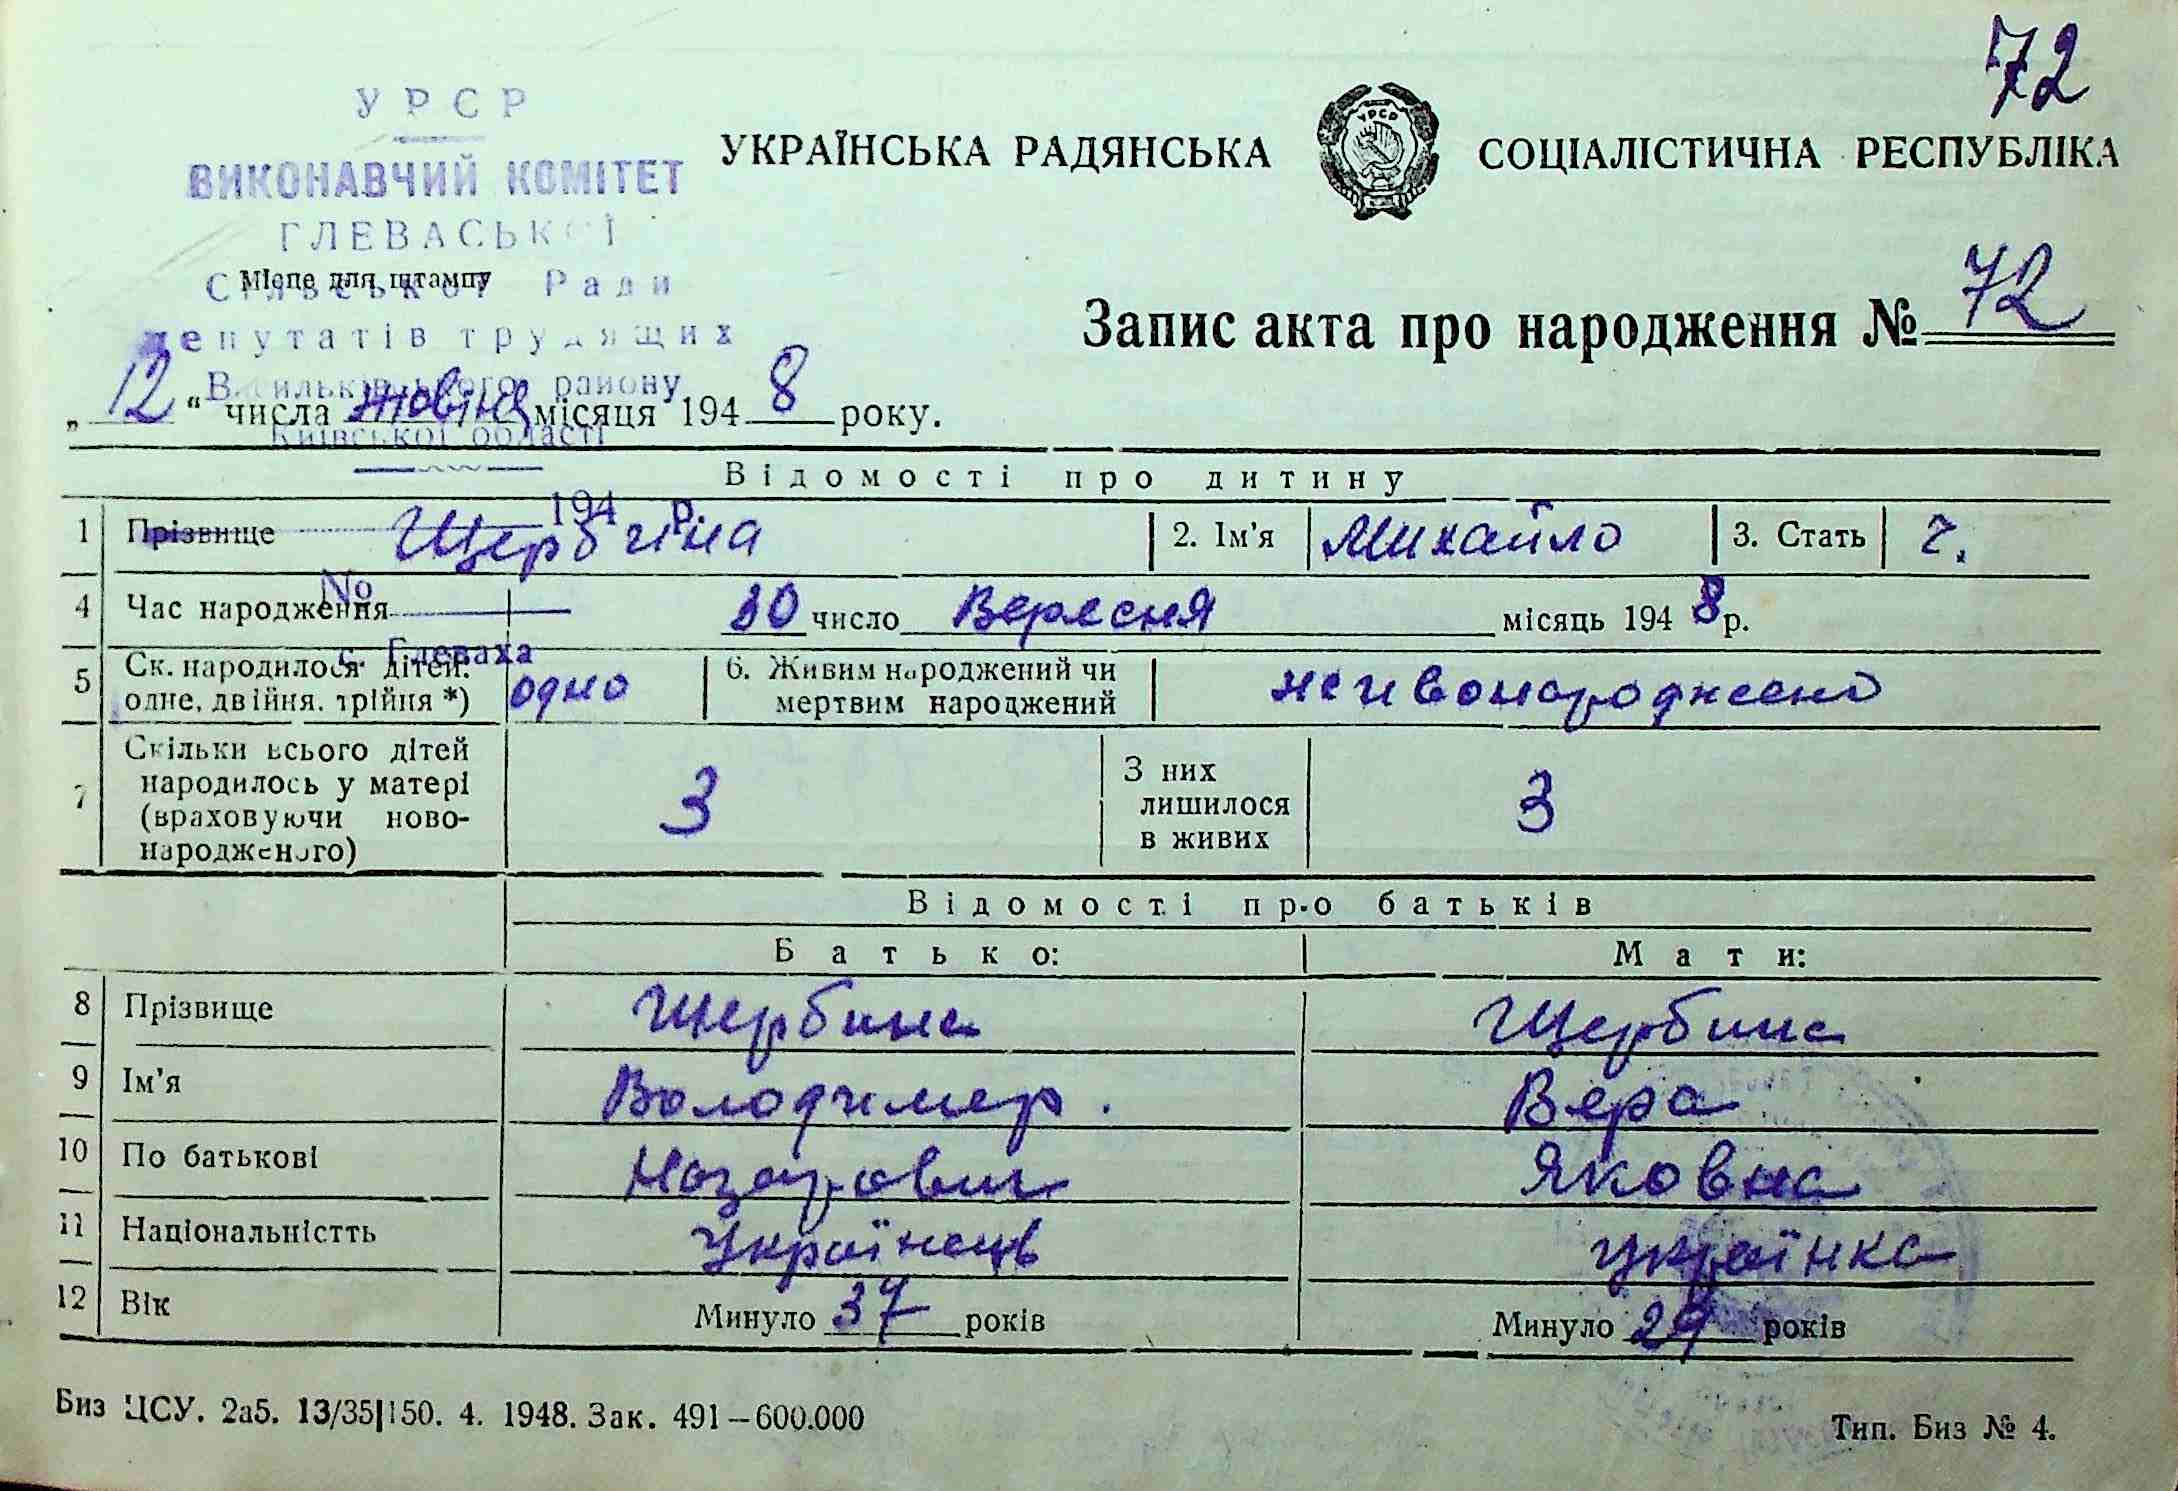 72
УРСР
ВИКОНАВЧИЙ КОМІТЕТ
ГЛЕВАСЬКОЇ
Сільської Ради
депутатів трудящих
Васильківського району
Київської області
194 р.
№
с. Глеваха
УКРАЇНСЬКА РАДЯНСЬКА СОЦІАЛІСТИЧНА РЕСПУБЛІКА
УРСР
Місце для штампу
Запис акта про народження № 72
„12“ числа жовтня місяця 1948 року.
Відомості про дитину
1 Прізвище Щербина 2. Ім'я Михайло 3. Стать ч.
4 Час народження 30 число Вересня місяць 1948 р.
5 Ск. народилося дітей: одне, двійня, трійня *) одно 6. Живим народжений чи мертвим народжений живонароджено
7 Скільки всього дітей народилось у матері (враховуючи новонародженого) 3 З них лишилося в живих 3
Відомості про батьків
Батько: Мати:
8 Прізвище Щербина Щербина
9 Ім'я Володимер. Вера
10 По батькові Назарович Яковна
11 Національністть Українець українка
12 Вік Минуло 37 років Минуло 29 років
Биз ЦСУ. 2а5. 13/35|150. 4. 1948. Зак. 491–600.000 Тип. Биз № 4.